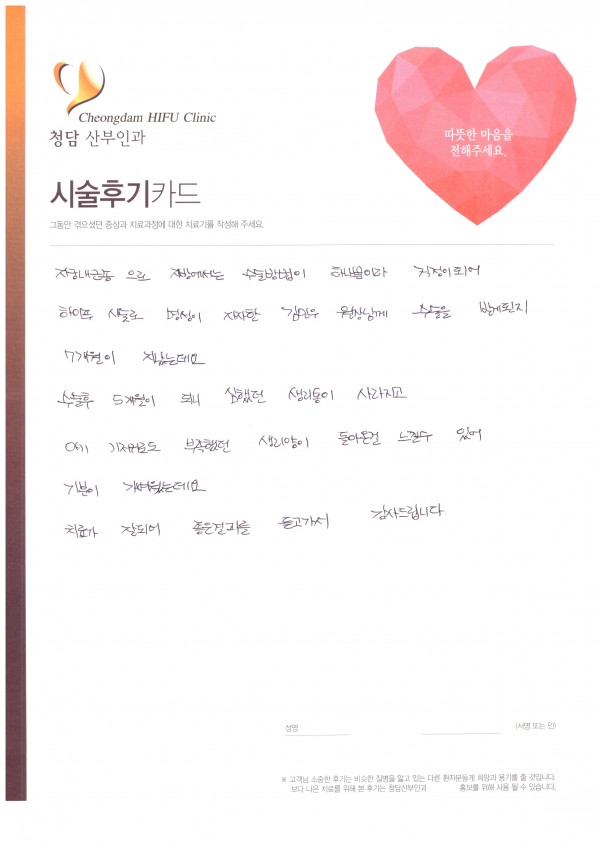 Cheongdam HIFU Clinic
청담 산부인과
따뜻한 마음을
전해주세요.
시술후기카드
그동안 겪으셨던 증상과 치료과정에 대한 치료기를 작성해 주세요.
자궁내근종 으로 지방에서는 수술방법이 하나뿐이라 걱정이되어
하이푸 시술로 명성이 자자한 김민우 원장님께 수술을 받게된지
7개월이 지났는데요
수술후 5개월이 되니 심했던 생리통이 사라지고
여기 기저귀로도 부족했던 생리양이 돌아온걸 느낄수 있어
기분이 가벼웠는데요
치료가 잘되어 좋은결과를 듣고가서 감사드립니다.
성명
(서명 또는 인)
※ 고객님 소중한 후기는 비슷한 질병을 앓고 있는 다른 환자분들게 희망과 용기를 줄 것입니다.
보다 나은 치료를 위해 본 후기는 청담산부인과 홍보를 위해 사용 될 수 있습니다.